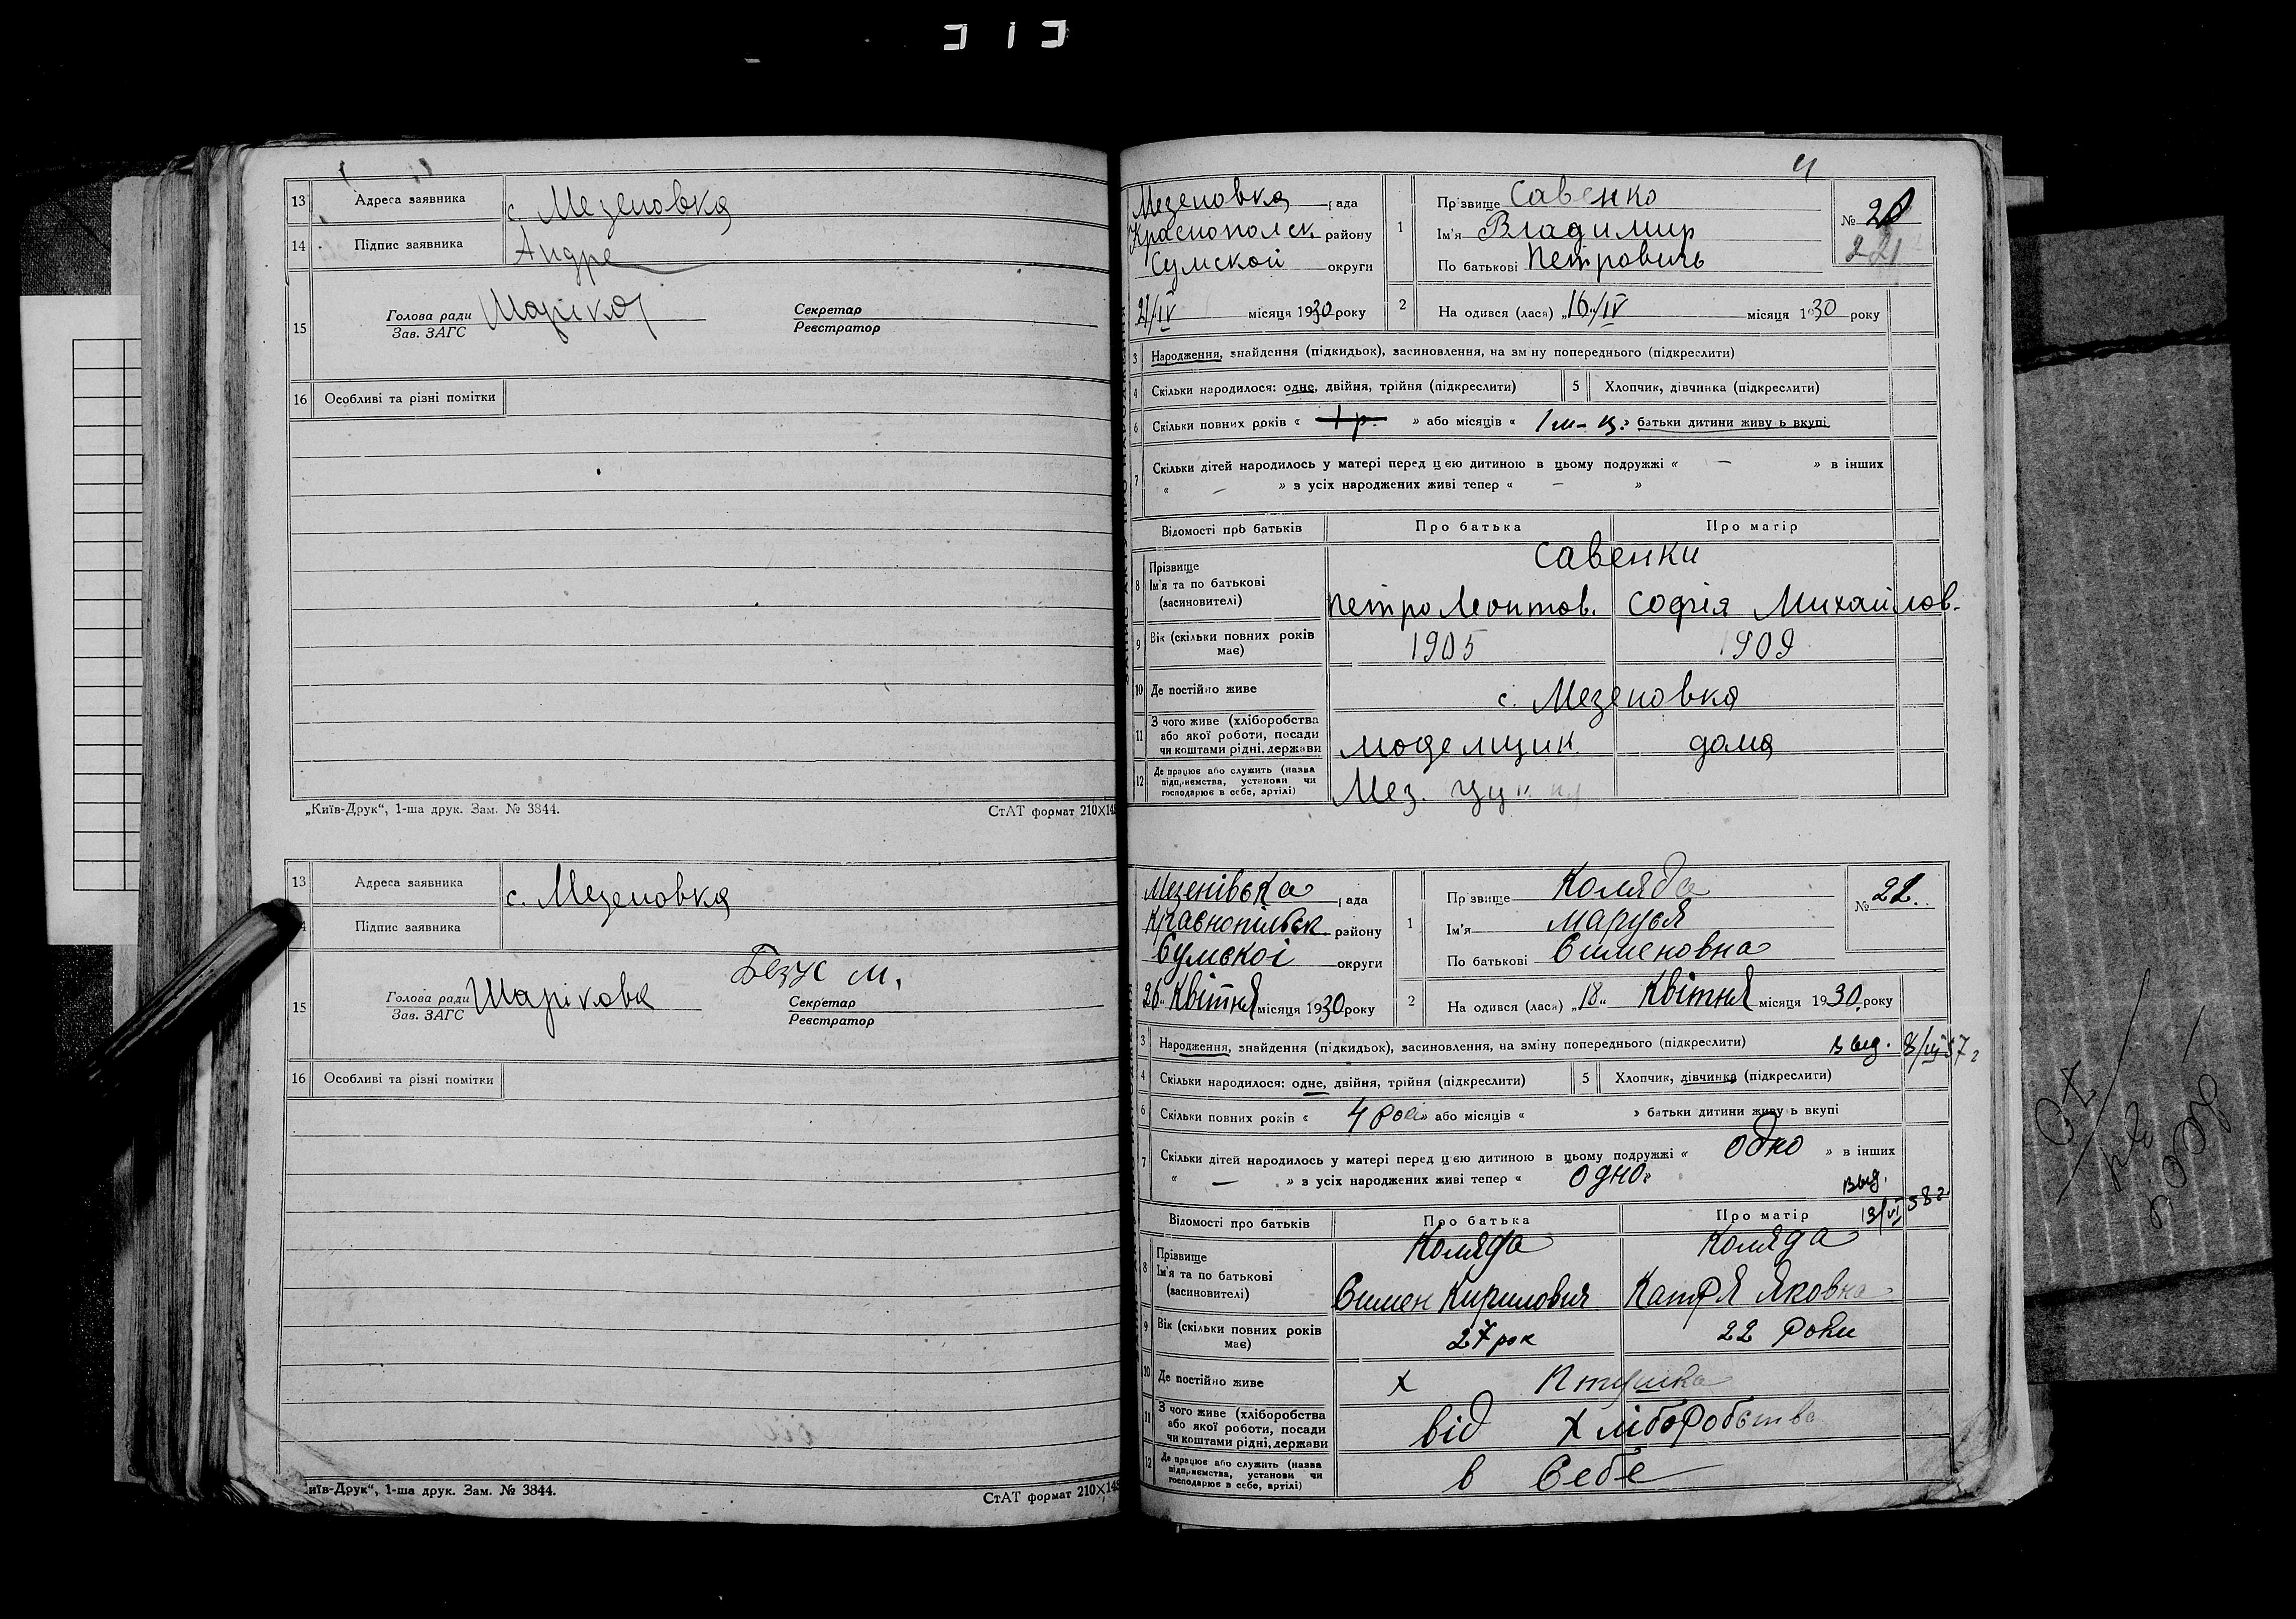 13 Адреса заявника с. Мезеновка
14 Підпис заявника Андре
15 Голова ради Шаріков Секретар
Зав. ЗАГС Реєстратор
16 Особливі та різні помітки
„Київ-Друк“, 1-ша друк. Зам. № 3844. СтАТ формат 210×148
13 Адреса заявника с. Мезеновка
Підпис заявника
Безус м.
15 Голова ради Шарікова Секретар
Зав. ЗАГС Реєстратор
16 Особливі та різні помітки
иїв-Друк“, 1-ша друк. Зам. № 3844. СтАТ формат 210×148
Мезеновка рада
Краснополск. району
Сумской округи
21/IV місяця 1930 року
1 Прізвище Савенко
Ім'я Владимир
По батькові Петровичь
№ 20
221
2 На одився (лася) „16“/IV місяця 1930 року
3 Народження, знайдення (підкидьок), засиновлення, на зміну попереднього (підкреслити)
4 Скільки народилося: одне, двійня, трійня (підкреслити) 5 Хлопчик, дівчинка (підкреслити)
6 Скільки повних років « 1 р. » або місяців « 1 м-ц. » батьки дитини живу ь вкупі
7 Скільки дітей народилось у матері перед цією дитиною в цьому подружжі « — » в інших
« — » з усіх народжених живі тепер « — »
Відомості про батьків Про батька Про матір
Савенки
8 Прізвище
Ім'я та по батькові
(засиновителі)
Петро Леонтов. Софія Михайлов.
9 Вік (скільки повних років має) 1905 1909
10 Де постійно живе с. Мезеновка
11 З чого живе (хліборобства
або якої роботи, посади
чи коштами рідні, держави
моделщик. дома
12 Де працює або служить (назва
підприємства, установи чи
господарює в себе, артілі)
Мез. цук.
Мезенівська рада
Краснопільск району
Сумської округи
26 Квітня місяця 1930 року
1 Прізвище Коляда
Ім'я Маруся
По батькові Сименовна
№ 22.
2 На одився (лася) „18“ Квітня місяця 1930 року
3 Народження, знайдення (підкидьок), засиновлення, на зміну попереднього (підкреслити) выд. 8/III 57 г
4 Скільки народилося: одне, двійня, трійня (підкреслити) 5 Хлопчик, дівчинка (підкреслити)
6 Скільки повних років « 4 рокі » або місяців « » батьки дитини живу ь вкупі
7 Скільки дітей народилось у матері перед цією дитиною в цьому подружжі « одно » в інших
« — » з усіх народжених живі тепер « одно »
выд.
13/VI 58 г
Відомості про батьків Про батька Про матір
Коляда Коляда
8 Прізвище
Ім'я та по батькові
(засиновителі)
Симен Кирилович Катря Яковна
9 Вік (скільки повних років має) 27 рок 22 роки
10 Де постійно живе х Птушка
11 З чого живе (хліборобства
або якої роботи, посади
чи коштами рідні, держави
від хліборобства
12 Де працює або служить (назва
підприємства, установи чи
господарює в себе, артілі)
в себе